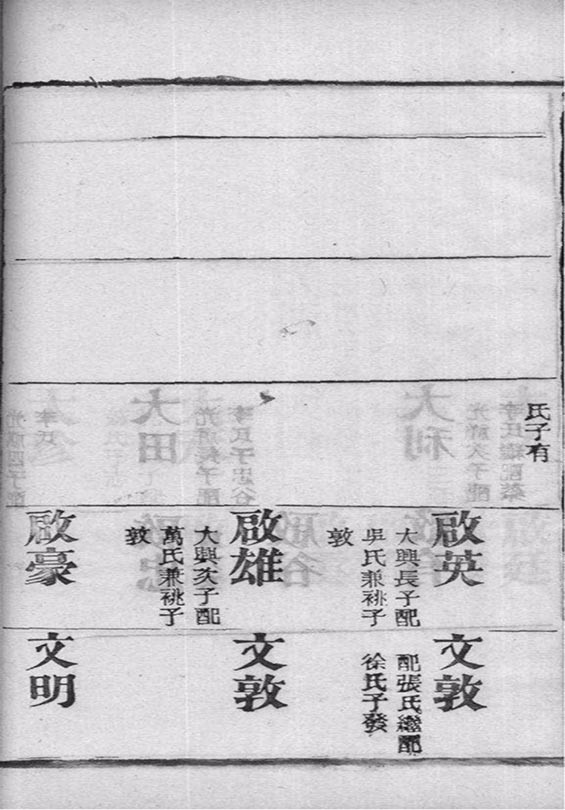 氏子有
啟英
大興長子配
吳氏兼祧子
敦
啟雄
大興次子配
萬氏兼祧子
敦
啟豪
文敦
配張氏繼配
徐氏子發
文敦
文明